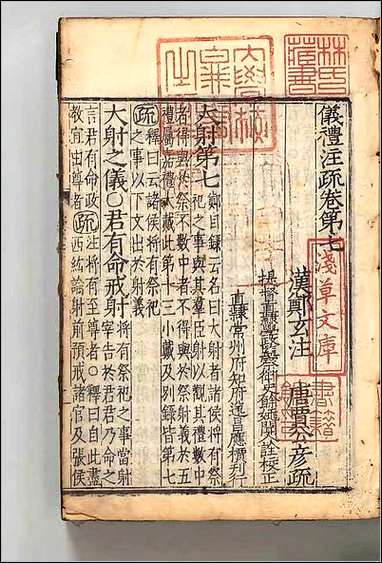 儀禮注疏卷第七
漢鄭玄注 唐賈公彥疏
提督直隸學政監察御史餘姚聞人詮校正
直隸常州府知府遂昌應檟刊行
大射第七 鄭目録云名曰大射者諸侯將有祭
祀之事與其羣臣射以觀其禮數中
者得與於祭不數中者不得與於祭射義於五
禮屬嘉禮大戴此第十三小戴及别録皆第七
疏 釋曰云諸侯將有祭祀
之事以下文出於射義
大射之儀○君有命戒射 將有祭祀之事當射
宰告於君君乃命之
言君有命政
教宜由尊者
疏 注將有至尊者○釋曰自此盡
西紘論射前預戒諸官及張侯
林氏藏書
淺草文庫